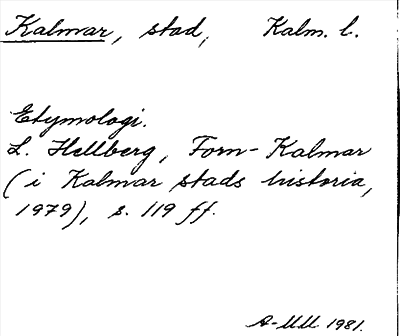 Kalmar, stad, Kalm. l.
Etymologi.
L. Hellberg, Forn-Kalmar
(i Kalmar stads historia,
1979), s. 119 ff.
A-MM 1981.